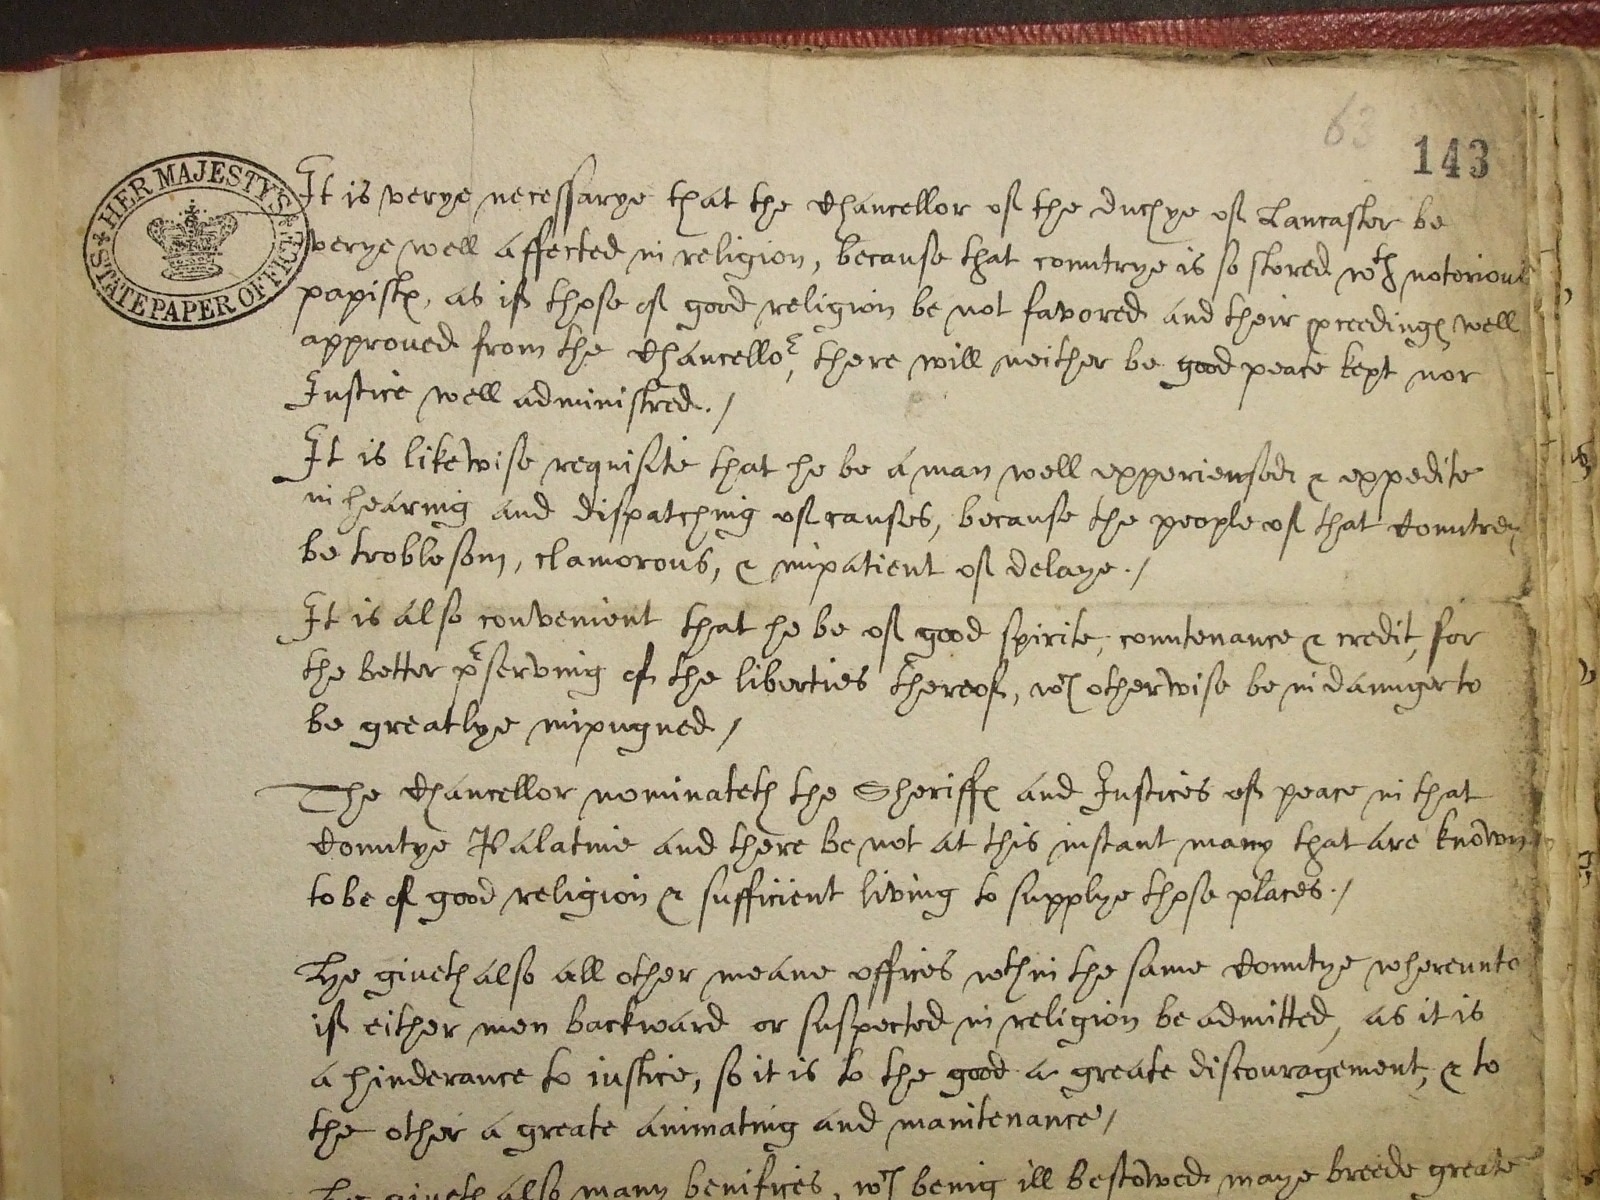 63
143
HER MAJESTY'S
STATE PAPER OFFICE
It is verye necessarye that the Chancellor of the duchye of Lancaster be
verye well affected in religion, because that countrye is so stored wth notorious
papistꝭ, as if those of good religion be not favored and their ꝓceedingꝭ well
approved from the Chancellor, there will neither be good peace kept nor
Justice well administred./
It is likewise requisite that he be a man well experiensed & expedite
in hearing and dispatching of causes, because the people of that Countrey
be troblesom, clamorous, & impatient of delaye./
It is also convenient that he be of good spirite, countenance & credit, for
the better pᵉserving of the liberties thereof, wch otherwise be in daunger to
be greatlye impugned./
The Chancellor nominateth the Sheriffꝭ and Justices of peace in that
Countye Palatine and there be not at this instant many that are knowen
to be of good religion & sufficient living to supplye those places./
He giveth also all other meane offices wthin the same Countye whereunto
if either men backward or suspected in religion be admitted, as it is
a hinderance to iustice, so it is to the good a greate discouragement, & to
the other a greate animating and maintenance/
He giveth also many benifices, wch being ill bestowed maye breede greate